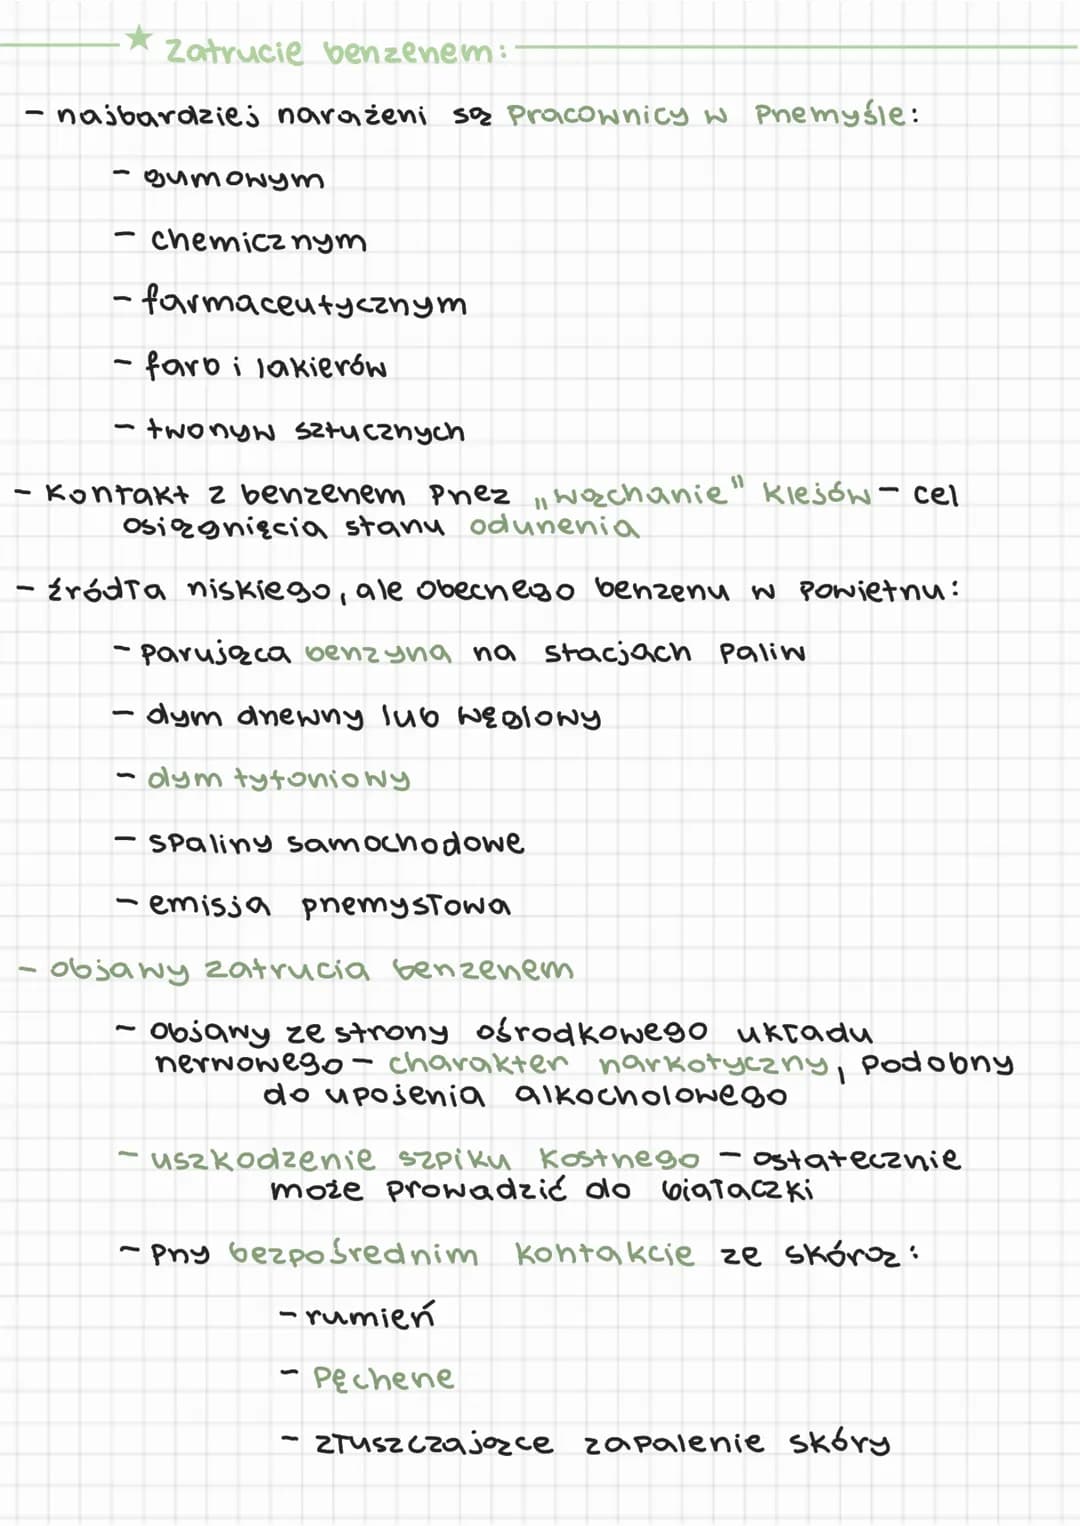 ★ Zatrucie benzenem:
- najbardziej narażeni są pracownicy w przemyśle:
- gumowym
- chemicznym
- farmaceutycznym
- farb i lakierów
- tworzyw sztucznych
- kontakt z benzenem przez „wąchanie" klejów - cel
osiągnięcia stanu odurzenia
- źródła niskiego, ale obecnego benzenu w powietrzu:
- parująca benzyna na stacjach paliw
- dym drzewny lub węglowy
- dym tytoniowy
- spaliny samochodowe
- emisja przemysłowa
- objawy zatrucia benzenem
- objawy ze strony ośrodkowego układu
nerwowego - charakter narkotyczny, podobny
do upojenia alkocholowego
- uszkodzenie szpiku kostnego - ostatecznie
może prowadzić do białaczki
- przy bezpośrednim kontakcie ze skórą:
- rumień
- pęcherze
- złuszczające zapalenie skóry